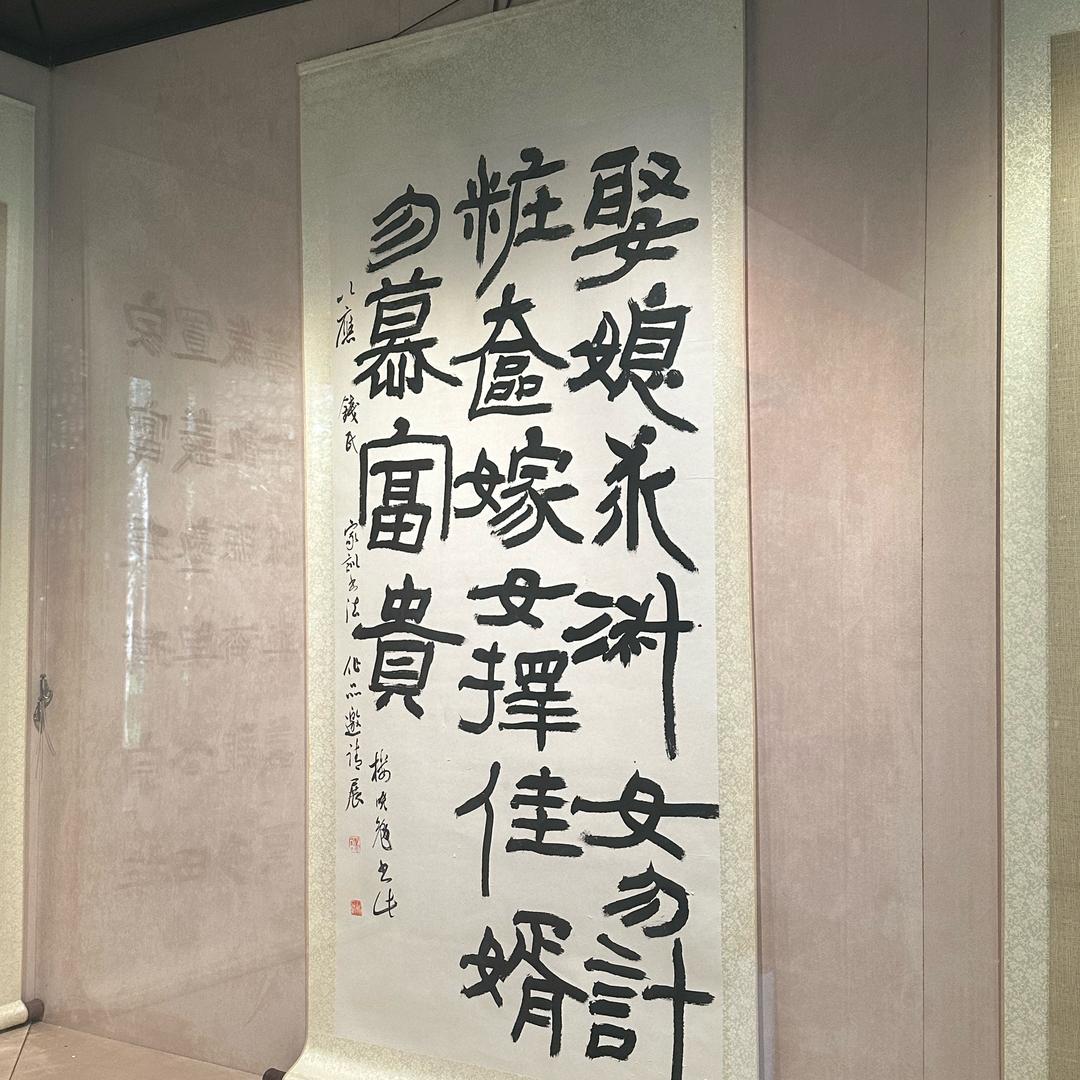 娶媳求淑女勿計
粧奩嫁女擇佳婿
勿慕富貴
以應錢氏家訓書法作品邀請展